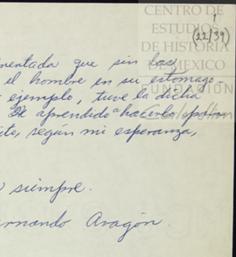 CENTRO DE
ESTUDIOS
DE HISTORIA
DE MEXICO
FUNDACIÓN
1
(22/39)
mentada que sin las
el hombre en su estomago.
ejemplo, tuve la dicha
He aprendido a hacerlo
según mi esperanza,
siempre.
ernando Aragón.